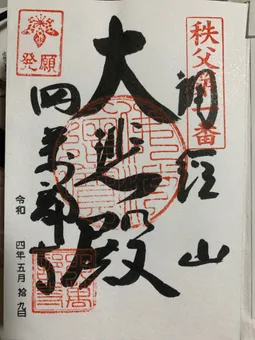 秩父第一番
誦経山
大悲殿
発願
四萬部寺
令和 四年五月拾九日